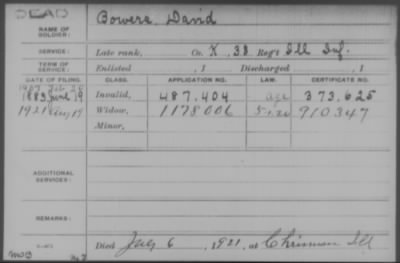 DEAD
NAME OF SOLDIER: Bowers, David
SERVICE: Late rank, Co. K, 38 Reg't Ill Inf.
TERM OF SERVICE: Enlisted , 1 Discharged , 1
DATE OF FILING. CLASS. APPLICATION NO. LAW. CERTIFICATE NO.
1907 Feb
1883 June 19 Invalid, 487.404 age 373.625
1921 Aug 19 Widow, 1178006 5-1-20 910347
Minor,
ADDITIONAL SERVICES:
REMARKS:
Died July 6, 1921, at Chrisman Ill